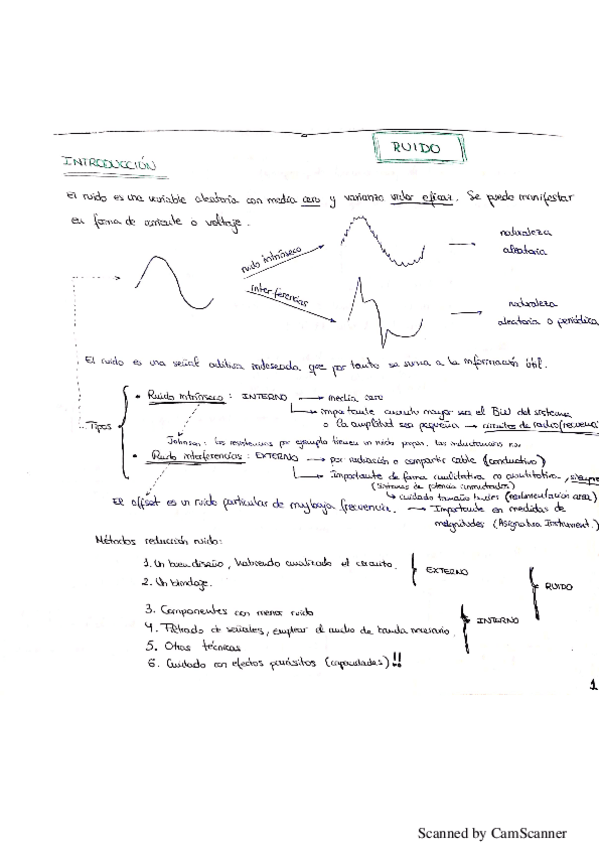 RUIDO
INTRODUCCIÓN
El ruido es una variable aleatoria con media cero y varianza valor eficaz. Se puede manifestar
en forma de corriente o voltaje.
ruido intrínseco
naturaleza
aleatoria
interferencias
naturaleza
aleatoria o periódica
El ruido es una señal aditiva indeseada, que por tanto se suma a la información útil.
Tipos
• Ruido intrínseco: INTERNO → media cero
→ importante cuando mayor sea el BW del sistema
o la amplitud sea pequeña → circuitos de radiofrecuencia
Johnson: las resistencias por ejemplo tienen un ruido propio, las inductancias no
• Ruido interferencias: EXTERNO → por radiación o compartir cable (conductivo)
→ Importante de forma cualitativa no cuantitativa, siempre
(Sistemas de potencia conmutados)
↳ cuidado tamaño (realimentación area)
El offset es un ruido particular de muy baja frecuencia. → Importante en medidas de
magnitudes (Asignatura Instrument.)
Métodos reducción ruido:
1. Un buen diseño, habiendo analizado el circuito.
2. Un blindaje.
EXTERNO
3. Componentes con menor ruido
4. Filtrado de señales, emplear el ancho de banda necesario.
5. Otras técnicas
6. Cuidado con efectos parásitos (capacidades) !!
INTERNO
RUIDO
1
Scanned by CamScanner